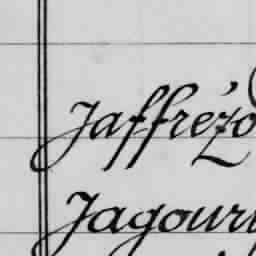 Jaffrézo
Jagour